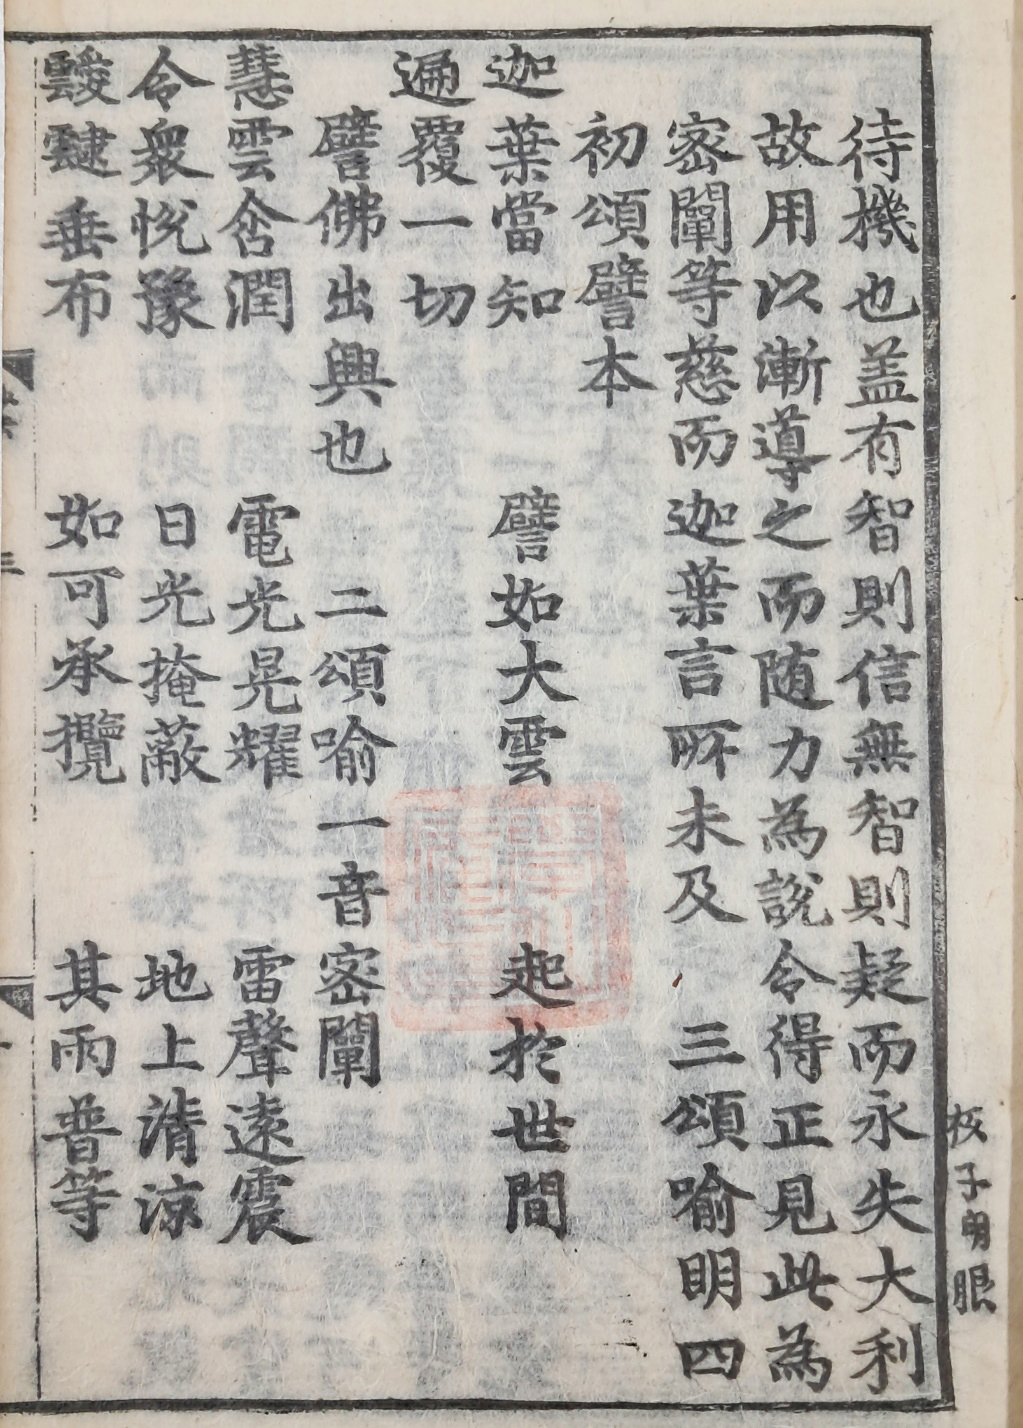 待機也盖有智則信無智則疑而永失大利
故用以漸導之而随力為說令得正見此為
密闡等慈而迦葉言所未及 三頌喻明四
初頌譬本
迦葉當知 譬如大雲 起於世間
遍覆一切
譬佛出興也 二頌喻一音密闡
慧雲含潤 電光晃耀 雷聲遠震
令衆悅豫 日光掩蔽 地上清涼
靉靆垂布 如可承攬 其雨普等
三
校子明眼